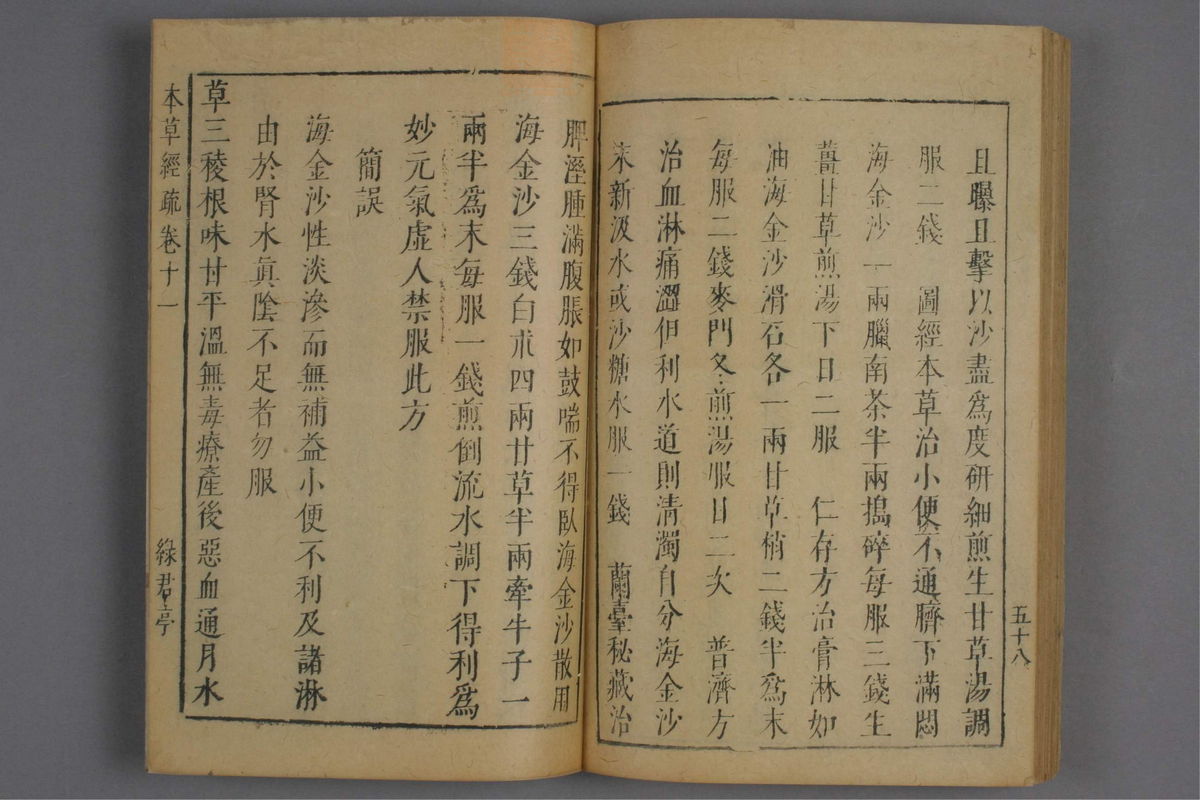 且曝且擊以沙盡爲度研細煎生甘草湯調
服二錢　圖經本草治小便不通臍下滿悶
海金沙一兩臘南茶半兩搗碎每服三錢生
薑甘草煎湯下日二服　仁存方治膏淋如
油海金沙滑石各一兩甘草梢二錢半爲末
每服二錢麥門冬煎湯服日二次　普濟方
治血淋痛澀但利水道則清濁自分海金沙
末新汲水或沙糖水服一錢　蘭臺秘藏治
五十八
脾溼腫滿腹脹如鼓喘不得臥海金沙散用
海金沙三錢白朮四兩甘草半兩牽牛子一
兩半爲末每服一錢煎倒流水調下得利爲
妙元氣虛人禁服此方
簡誤
海金沙性淡滲而無補益小便不利及諸淋
由於腎水眞陰不足者勿服
草三稜根味甘平溫無毒療產後惡血通月水
本草經疏卷十一
綠君亭